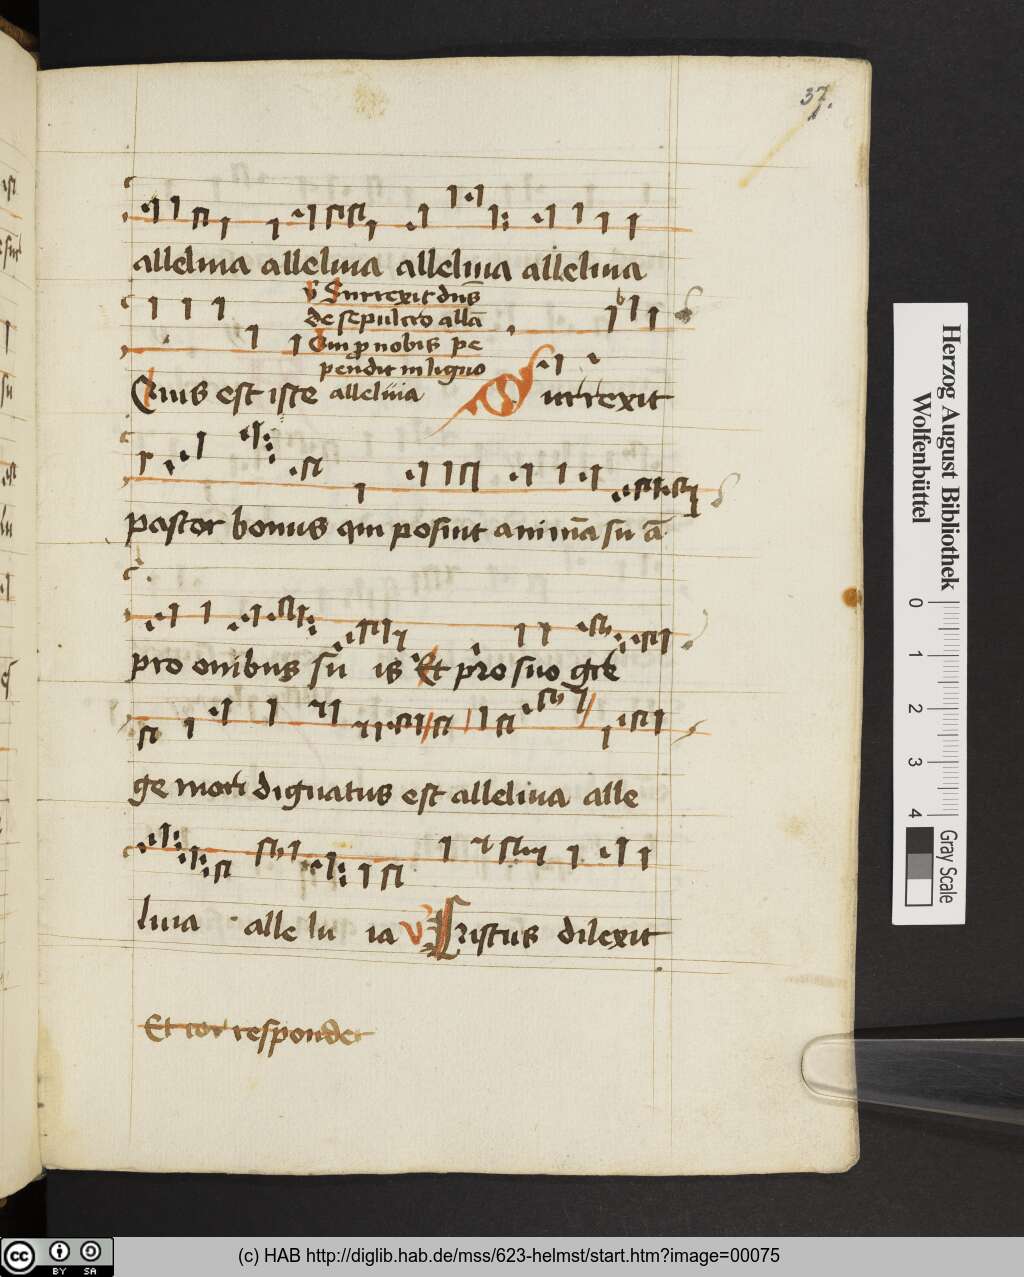 37.
alleluia alleluia alleluia alleluia
V Surrexit dn̄s
de sepulcro allā
Qui ꝓ nobis pe
pendit in ligno
Quis est iste alleluia Surrexit
pastor bonus qui posuit animā su ā
pro omibus su is Et pro suo gre
ge mori dignatus est alleluia alle
luia alle lu ia V Cristus dilexit
Et cor responder
Herzog August Bibliothek
Wolfenbüttel
0 1 2 3 4
Gray Scale
cc BY SA
(c) HAB http://diglib.hab.de/mss/623-helmst/start.htm?image=00075